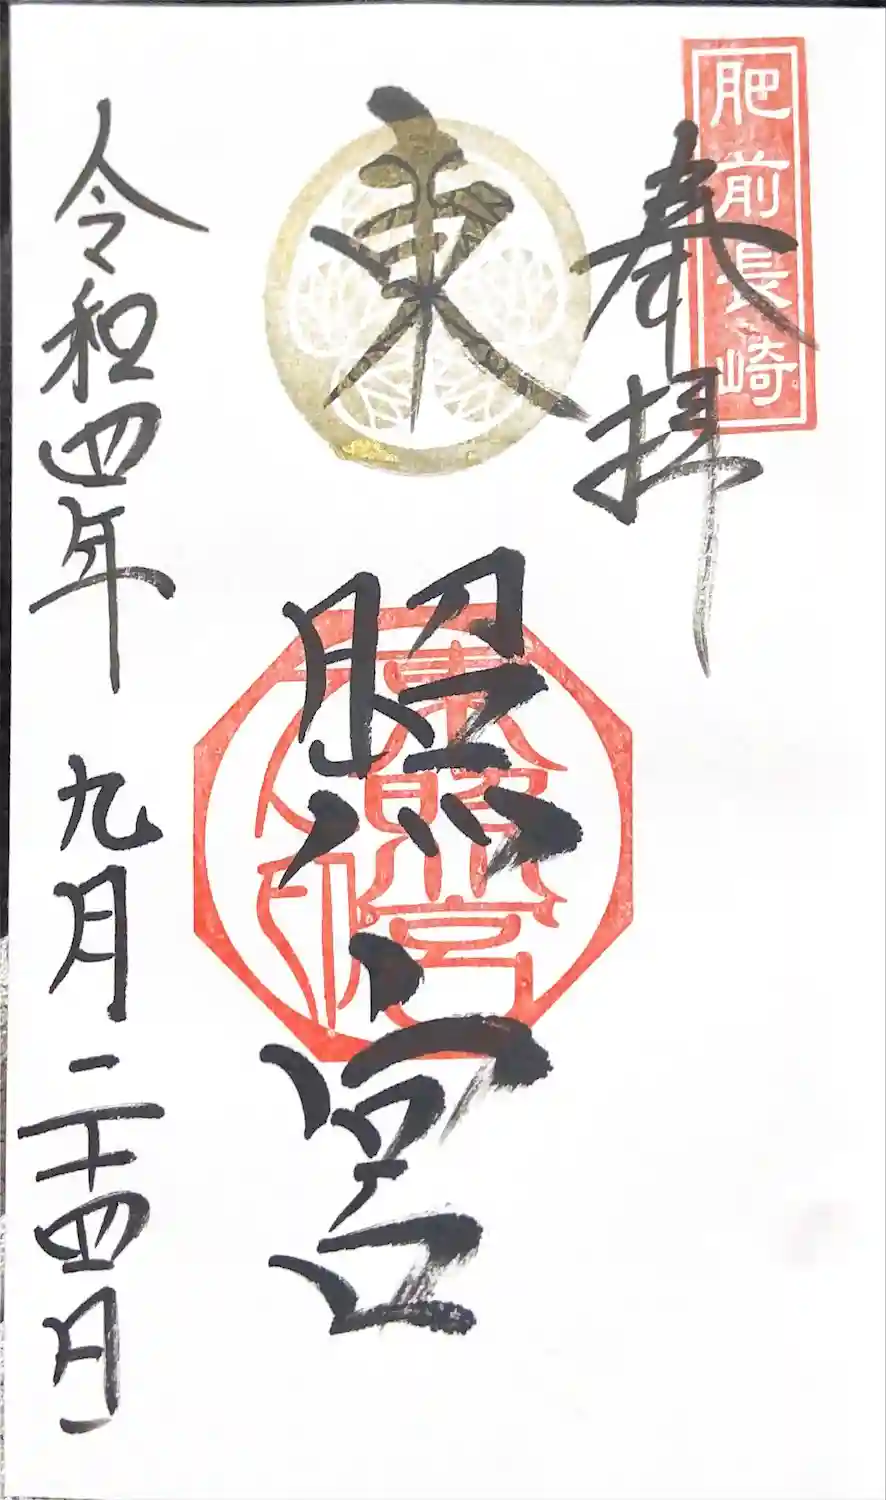 肥前長崎
奉拝
東照宮
東照宮
之印
令和四年九月二十四日